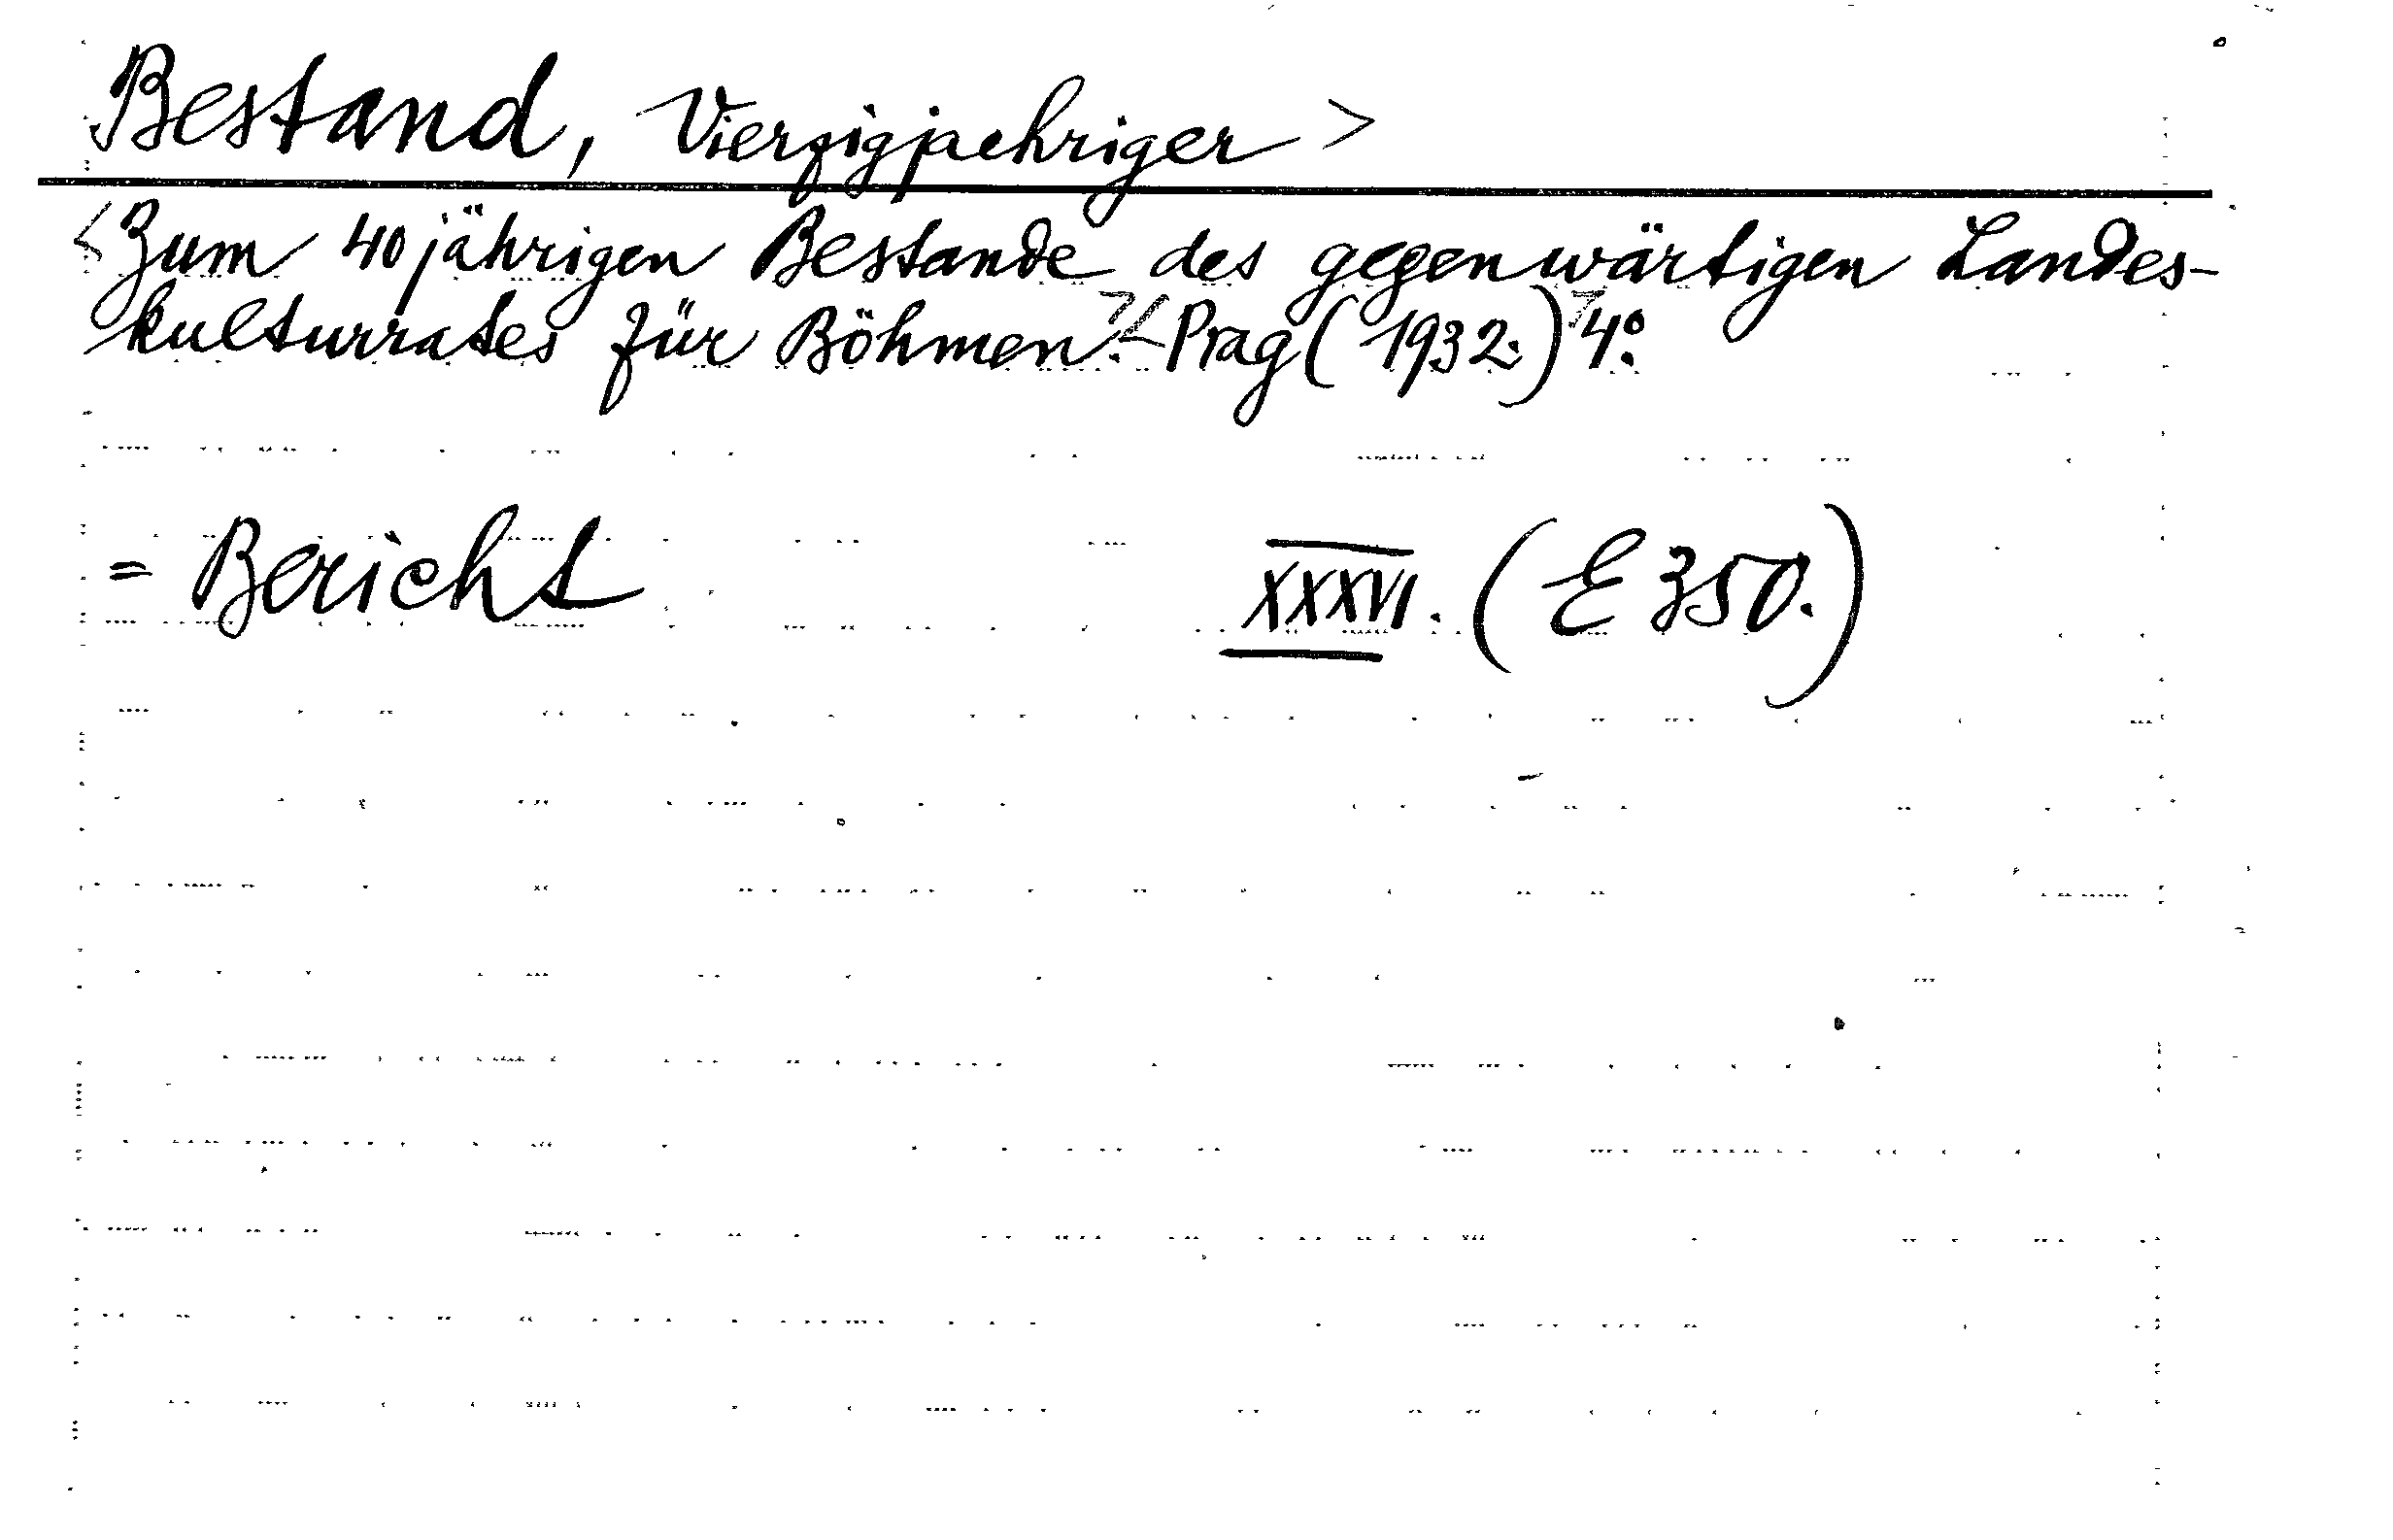 Bestand, Vierzigjaehriger >
<Zum 40jährigen Bestande des gegenwärtigen Landes-
kulturrates für Böhmen.><Prag (1932.)> 4°.
= Bericht XXXVI. (E 350.)